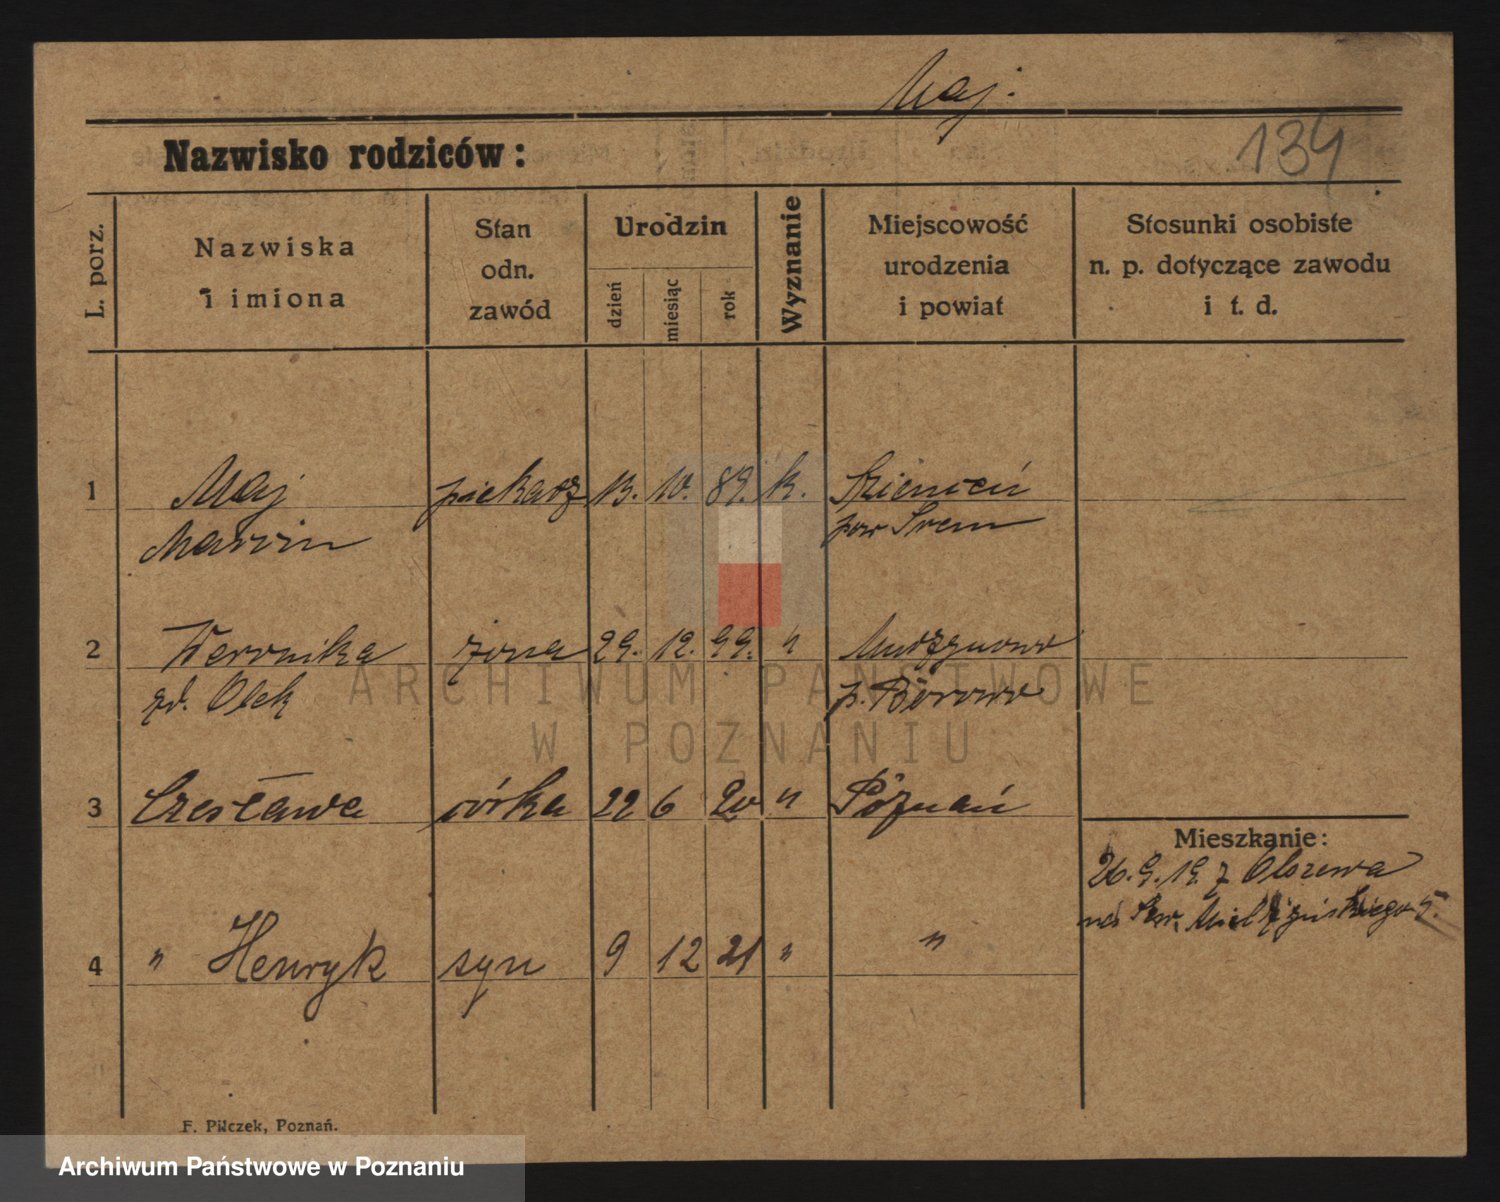 Maj.
134
Nazwisko rodziców:
L. porz.
Nazwiska
i imiona
Stan
odn.
zawód
Urodzin
dzień
miesiąc
rok
Wyznanie
Miejscowość
urodzenia
i powiat
Stosunki osobiste
n. p. dotyczące zawodu
i t. d.
1 Maj piekarz 13. 10. 89. k.
Marcin pow Śrem
2 Weronika żona 29. 12. 99. "
zd. Olek p. Borowo
3 Czesława córka 22 6 20 " Poznań
Mieszkanie:
26. 9. 19. z
4 " Henryk syn 9 12 21 " "
F. Pilczek, Poznań.
ARCHIWUM PAŃSTWOWE
W POZNANIU
Archiwum Państwowe w Poznaniu